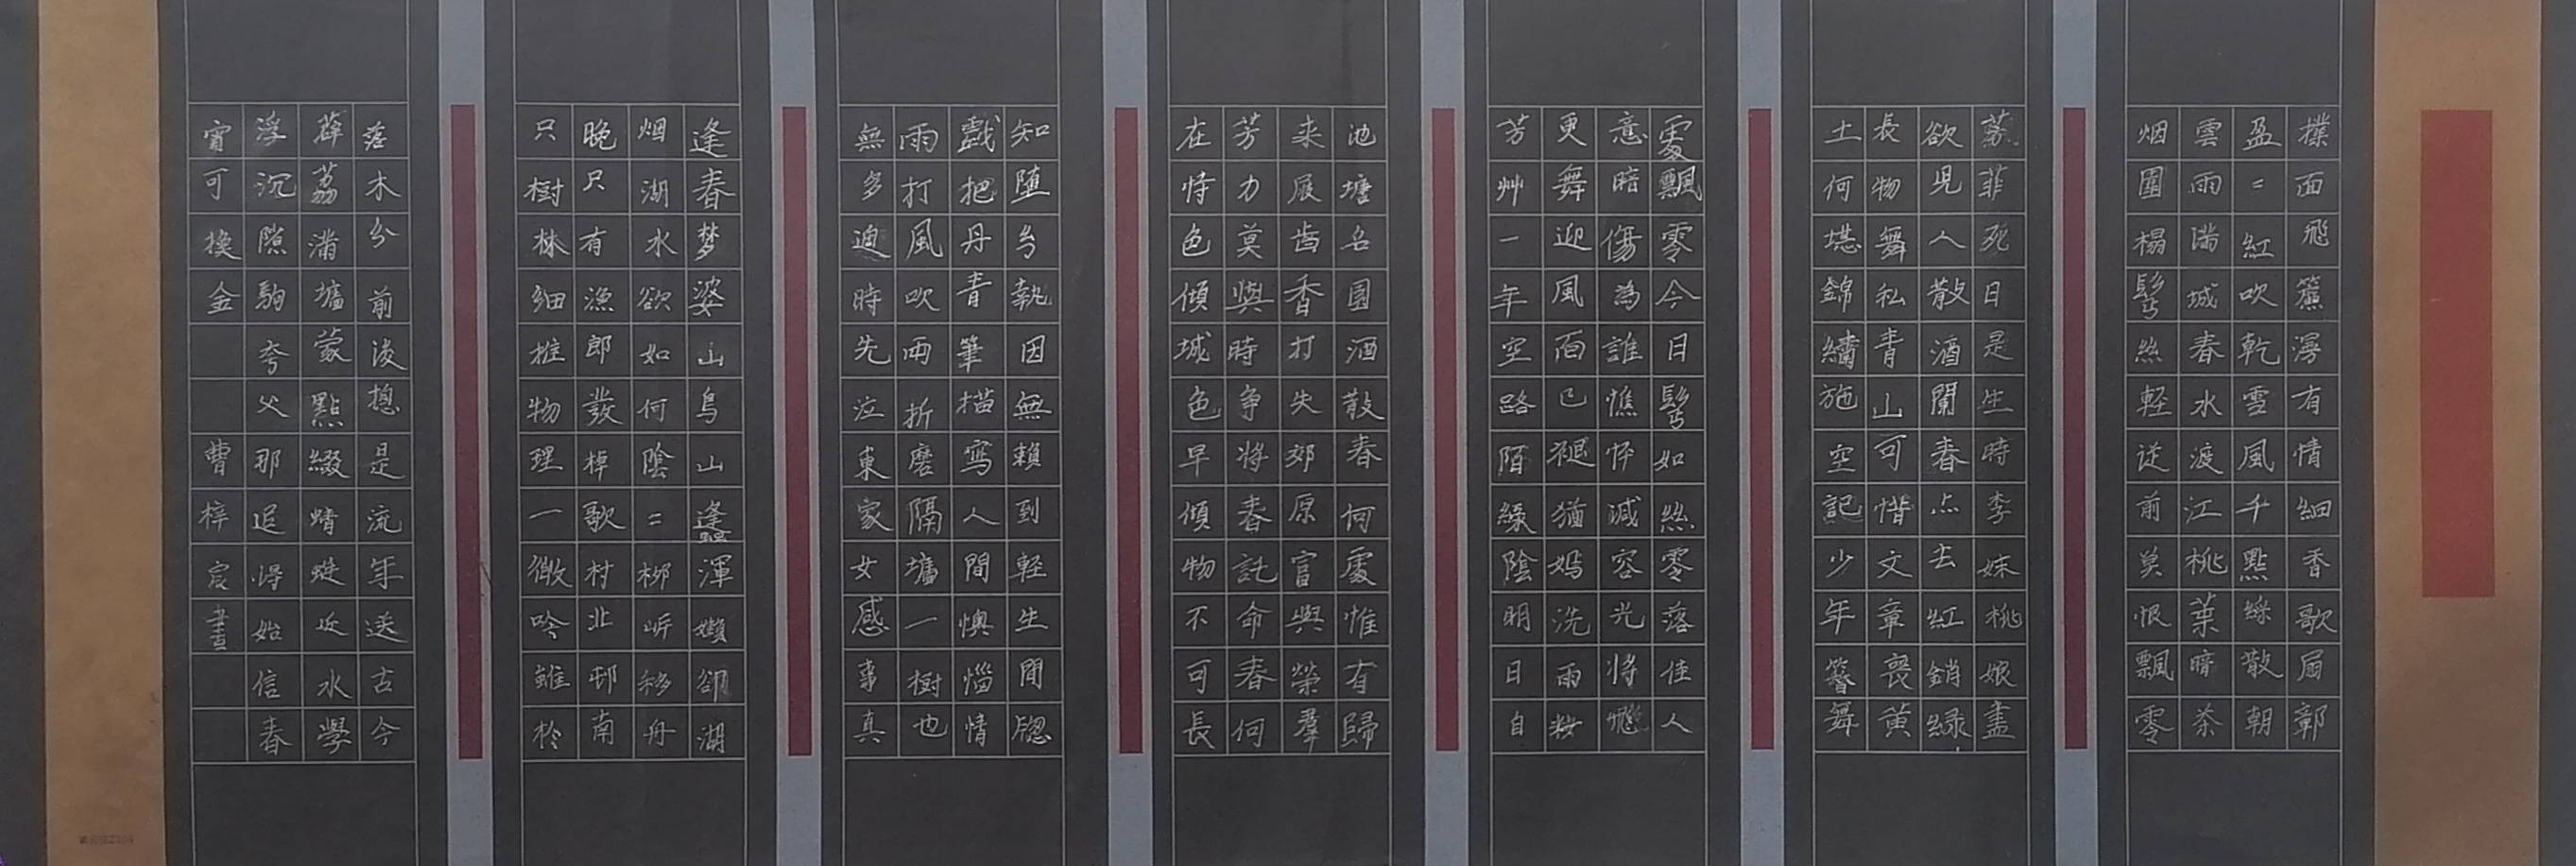 撲面飛簾漫有情細香歌扇鄣
盈=紅吹乾雪風千點綵散朝
雲雨滿城春水渡江桃葉暗茶
烟圍榻鬓絲輕從前莫恨飄零
芳菲死日是生時李妹桃娘盡
欲兒人散酒闌春亦去紅銷綠
長物舞私青山可惜文章喪黄
土何堪錦繡施空記少年簪舞
處飄零今日鬓如絲零落佳人
意暗傷為誰憔悴減容光將飛
更舞迎風面已褪猶嫣洗雨粧
芳艸一年空路陌綠陰明日自
池塘名園酒散春何處惟有歸
来屐齒香打失郊原富與榮羣
芳力莫與時争將春託命春何
在恃色傾城色早傾物不可長
知墮兮執因無賴到輕生間牕
戲把丹青筆描寫人間懊惱情
雨打風吹兩折磨隔墻一樹也
無多適時先泣東家女感事真
逢春梦婆山鳥山逢渾懶卻湖
烟湖水欲如何陰=柳岍移舟
晚只有漁郎發棹歌村北邨南
只樹林細推物理一微吟雖於
落木分前後總是流年送古今
薜荔滿墻蒙點綴蜻蜓近水學
浮沉隙駒夸父那追得始信春
宵可換金 曹梓宸書